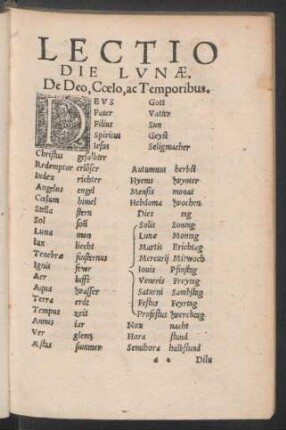 LECTIO
DIE LVNÆ.
De Deo, Cœlo, ac Temporibus.
DEVS Gott
Pater Vatter
Filius Sun
Spiritus Geyst
Iesus Seligmacher
Christus gesalbter
Redemptor erlöser
Iudex richter
Angelus engel
Cœlum himel
Stella stern
Sol soñ
Luna mon
Lux liecht
Tenebræ finsternis
Ignis fewr
Aer lufft
Aqua wasser
Terra erdt
Tempus zeit
Annus iar
Ver glentz
Æstus summer
Autumnus herbst
Hyems wynter
Mensis monat
Hebdoma wochen
Dies tag
Solis Sontag
Lunæ Montag
Martis Erichtag
Mercurij Mitwoch
Iouis Pfinstag
Veneris Freytag
Saturni Sambstag
Festus Feyrtag
Profestus werchtag
Nox nacht
Hora stund
Semihora halbstund
Dilu